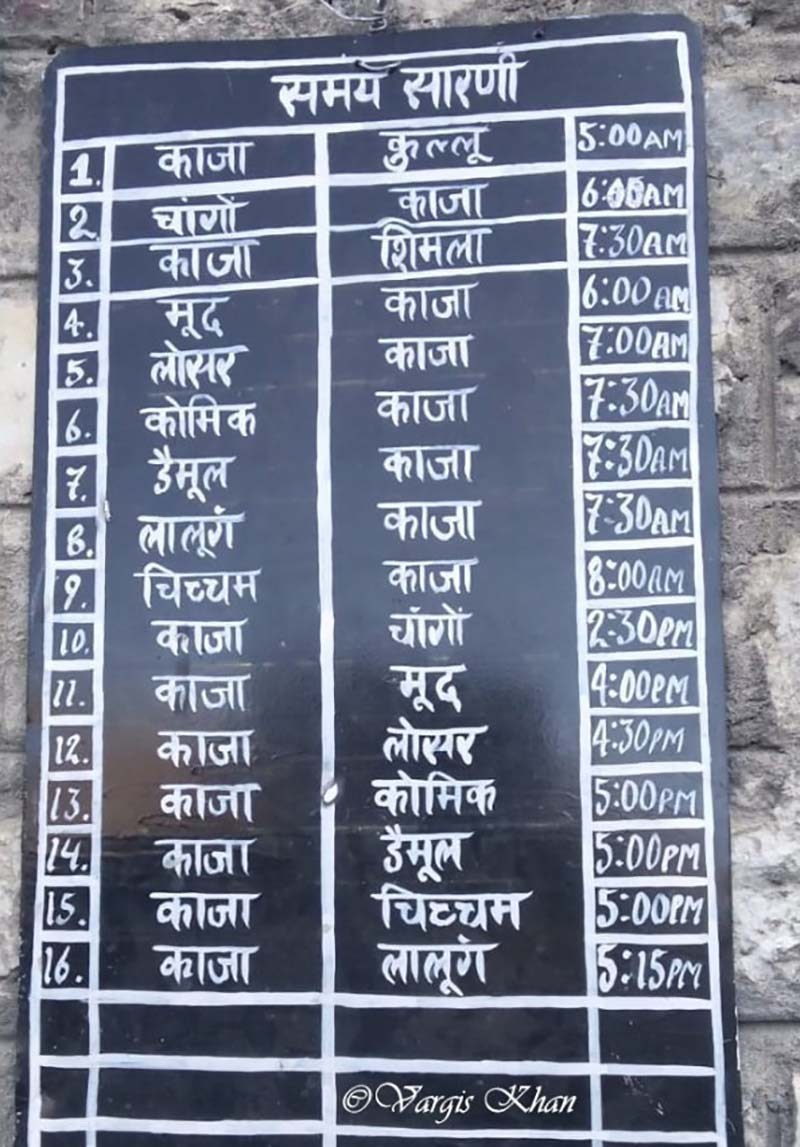 समय सारणी
1. काजा कुल्लू 5:00AM
2. चांगों काजा AM
3. काजा शिमला 7:30AM
4. मूद काजा 6:00AM
5. लोसर काजा 7:00AM
6. कोमिक काजा 7:30AM
7. डैमूल काजा 7:30AM
8. लालूगं काजा 7:30AM
9. चिच्चम काजा 8:00AM
10. काजा चांगों 2:30PM
11. काजा मूद 4:00PM
12. काजा लोसर 4:30PM
13. काजा कोमिक 5:00PM
14. काजा डैमूल 5:00PM
15. काजा चिच्चम 5:00PM
16. काजा लालूगं 5:15PM
©Vargis Khan